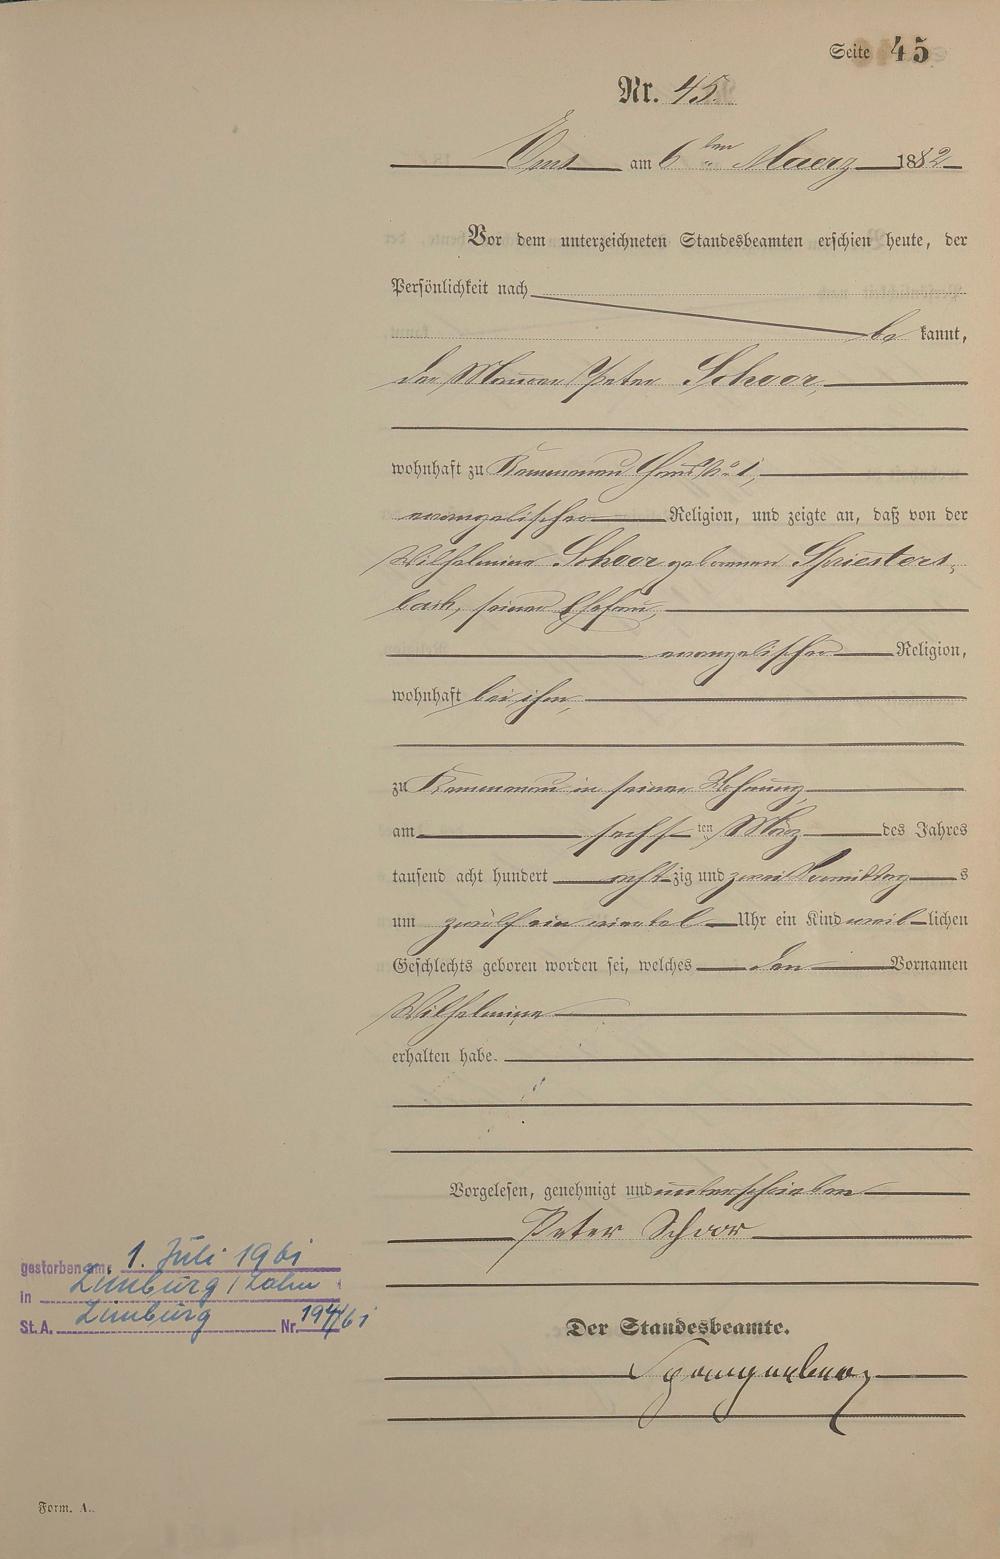 Seite 45
Nr. 45.
Ems am 6ten Maerz 1882
Vor dem unterzeichneten Standesbeamten erschien heute, der
Persönlichkeit nach
be kannt,
der Maurer Peter Schoor,
wohnhaft zu Kemmenau Haus No 1,
evangelischer Religion, und zeigte an, daß von der
Wilhelmine Schoor geborenen Spriesters,
bach, seiner Ehefrau,
evangelischer Religion,
wohnhaft bei ihm,
zu Kemmenau in seiner Wohnung
am sechsten März des Jahres
tausend acht hundert achtzig und zwei Vormittags
um zwölf ein viertel Uhr ein Kind weiblichen
Geschlechts geboren worden sei, welches den Vornamen
Wilhelmine
erhalten habe.
Vorgelesen, genehmigt und unterschrieben
Peter Schoor
gestorben am 1. Juli 1961
in Limburg / Lahn
St.A. Limburg Nr. /61
Der Standesbeamte.
Spangenberg
Form. A.